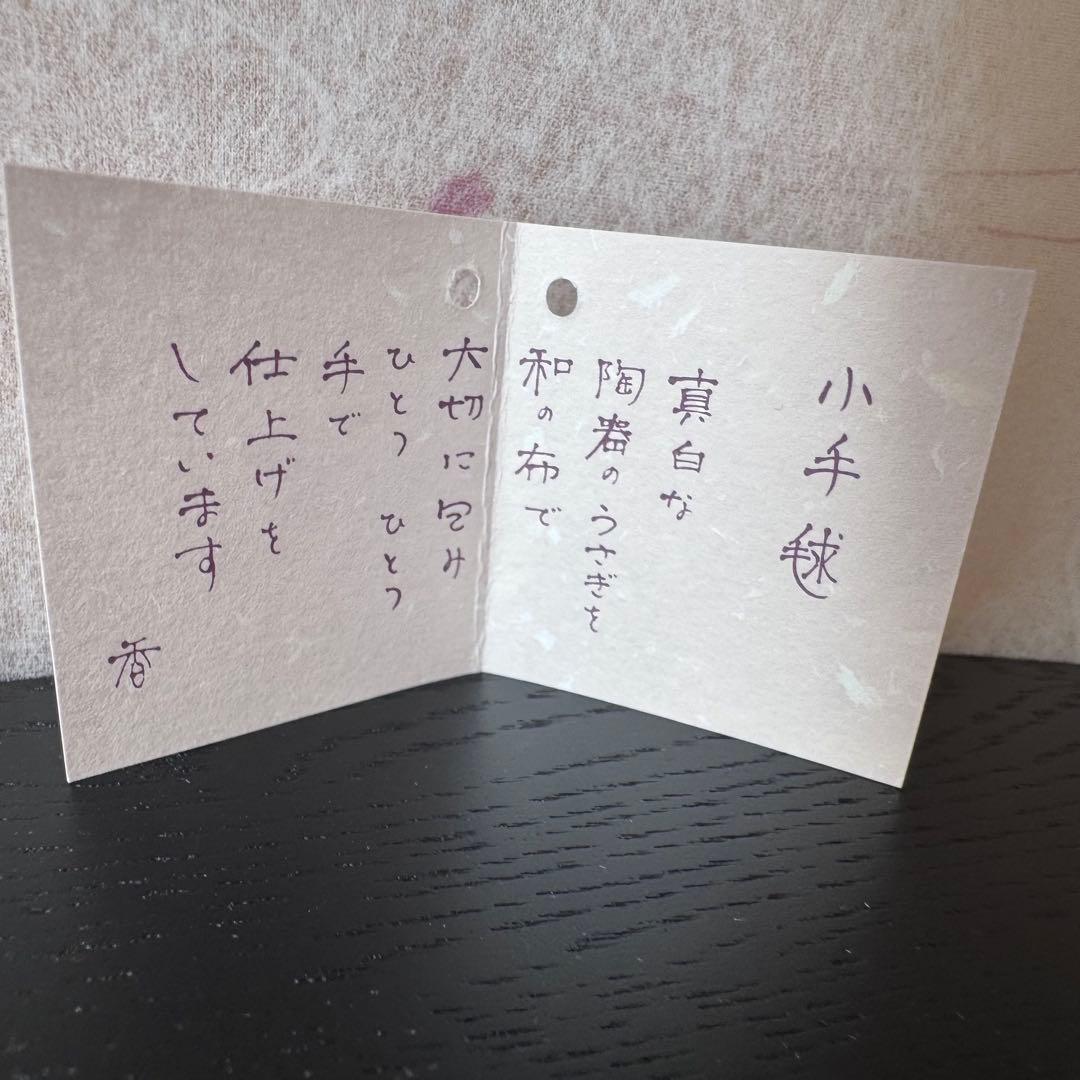 小手毬
真白な
陶器のうさぎを
和の布で
大切に包み
ひとつ ひとつ
手で
仕上げを
しています
香